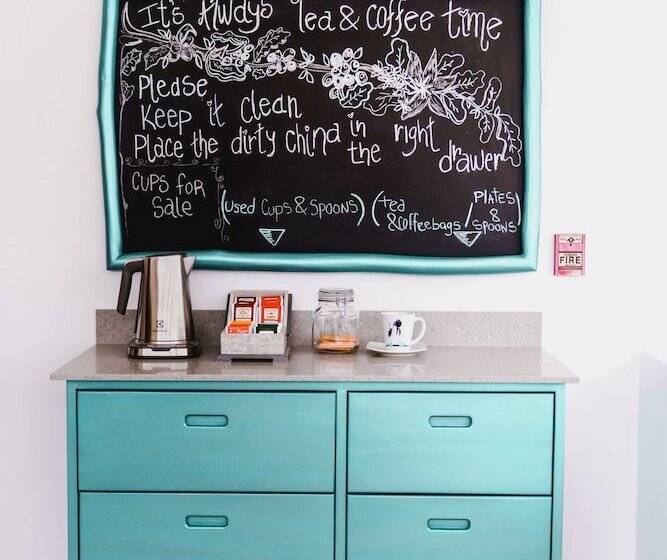 It's Always Tea & coffee time
Please
Keep it clean
Place the dirty china in the right drawer
CUPS FOR
Sale
(used Cups & Spoons)
(tea
& coffeebags /
PLATES
&
SPOONS)
FIRE